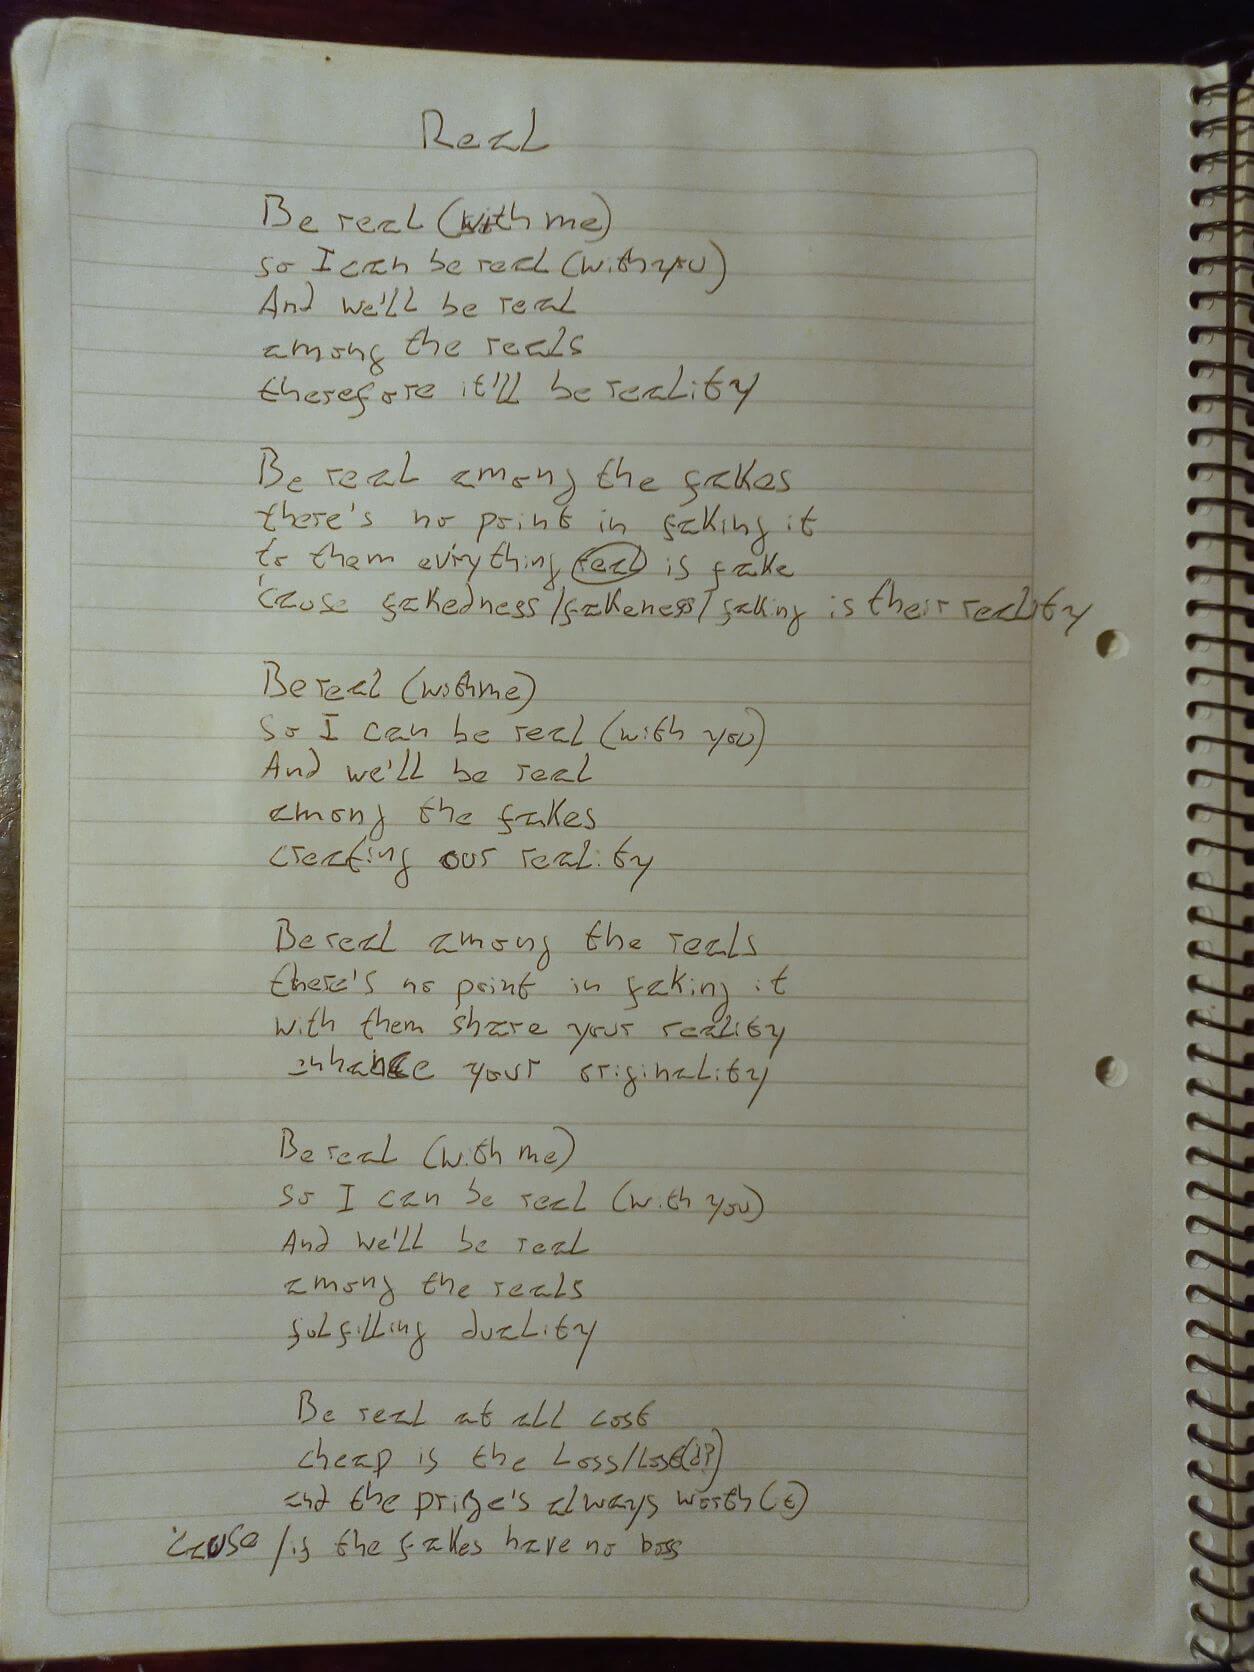 Real
Be real (with me)
so I can be real (with you)
And we'll be real
among the reals
therefore it'll be reality
Be real among the fakes
there's no point in faking it
to them evrything real is fake
'cause fakedness/fakeness/faking is their reality
Be real (with me)
So I can be real (with you)
And we'll be real
among the fakes
creating our reality
Be real among the reals
there's no point in faking it
with them share your reality
enhance your originality
Be real (with me)
so I can be real (with you)
And we'll be real
among the reals
fulfilling duality
Be real at all cost
cheap is the Loss/Lost(d?)
and the prize's always worth (t)
'cause / is the fakes have no boss